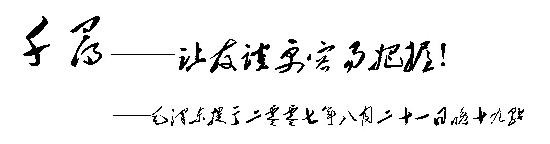 千寻——让友谊更容易把握!
——毛泽东提于二零零七年八月二十一日晚十九點